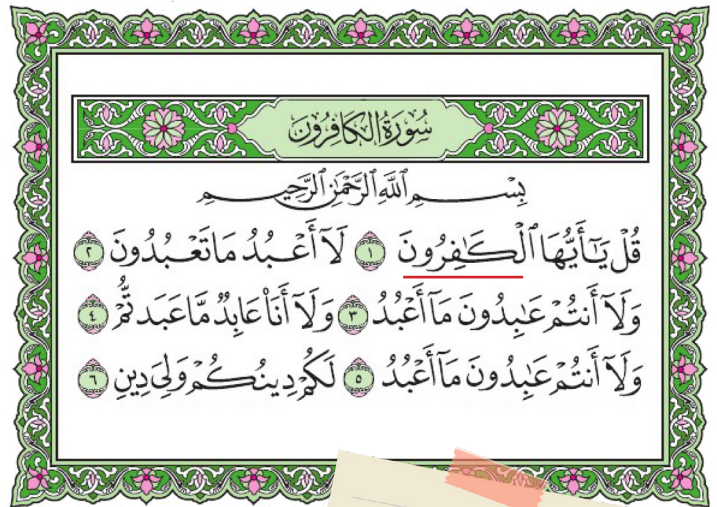 سُورَةُ الكَافِرُونَ
بِسْمِ ٱللَّهِ ٱلرَّحْمَٰنِ ٱلرَّحِيمِ
قُلْ يَٰٓأَيُّهَا ٱلْكَٰفِرُونَ ١ لَآ أَعْبُدُ مَا تَعْبُدُونَ ٢
وَلَآ أَنتُمْ عَٰبِدُونَ مَآ أَعْبُدُ ٣ وَلَآ أَنَا۠ عَابِدٌ مَّا عَبَدتُّمْ ٤
وَلَآ أَنتُمْ عَٰبِدُونَ مَآ أَعْبُدُ ٥ لَكُمْ دِينُكُمْ وَلِيَ دِينِ ٦